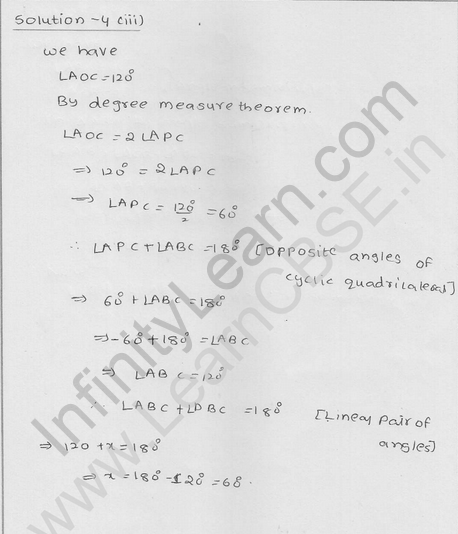 Solution -4 (iii)
we have
LAOC = 120°
By degree measure theorem.
LAOC = 2 LAPC
⇒ 120° = 2 LAPC
⇒ LAPC = 120°/2 = 60°
∴ LAPC + LABC = 180° [opposite angles of
cyclic quadrilateral]
⇒ 60° + LABC = 180°
⇒ -60° + 180° = LABC
⇒ LABC = 120°
∴ LABC + LDBC = 180° [Linear pair of
angles]
⇒ 120 + x = 180°
⇒ x = 180° - 120° = 60°.
InfinityLearn.com
www.LearnCBSE.in